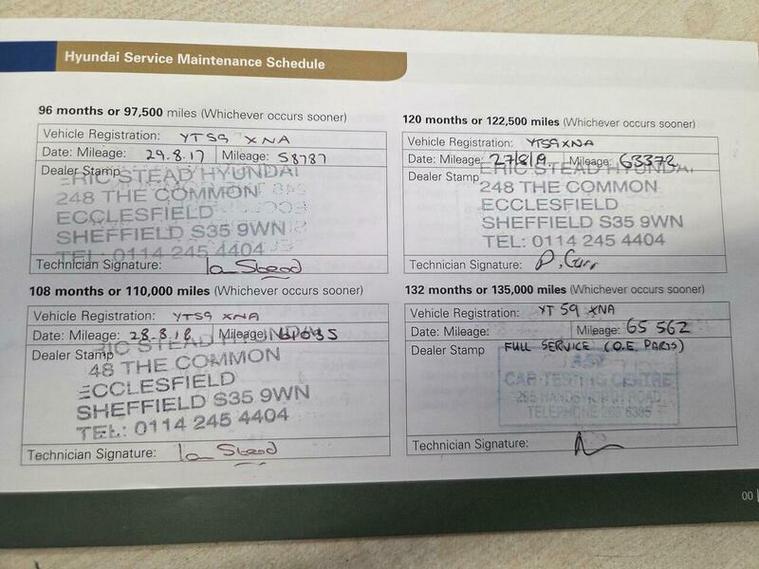 Hyundai Service Maintenance Schedule
96 months or 97,500 miles (Whichever occurs sooner)
Vehicle Registration: YT59 XNA
Date: Mileage: 29.8.17 Mileage: 58787
Dealer Stamp
ERIC STEAD HYUNDAI
248 THE COMMON
ECCLESFIELD
SHEFFIELD S35 9WN
TEL: 0114 245 4404
Technician Signature: Ian Stead
108 months or 110,000 miles (Whichever occurs sooner)
Vehicle Registration: YT59 XNA
Date: Mileage: 28.8.18 Mileage:
Dealer Stamp
RIC STEAD HYUNDAI
48 THE COMMON
ECCLESFIELD
SHEFFIELD S35 9WN
TEL: 0114 245 4404
Technician Signature: Ian Stead
120 months or 122,500 miles (Whichever occurs sooner)
Vehicle Registration: YT59XNA
Date: Mileage: 27/8/19 Mileage: 63372
Dealer Stamp
ERIC STEAD HYUNDAI
248 THE COMMON
ECCLESFIELD
SHEFFIELD S35 9WN
TEL: 0114 245 4404
Technician Signature:
132 months or 135,000 miles (Whichever occurs sooner)
Vehicle Registration: YT 59 XNA
Date: Mileage: Mileage: 65 562
Dealer Stamp FULL SERVICE (O.E. PARTS)
CAR TESTING CENTRE
ROAD
TELEPHONE
Technician Signature:
00